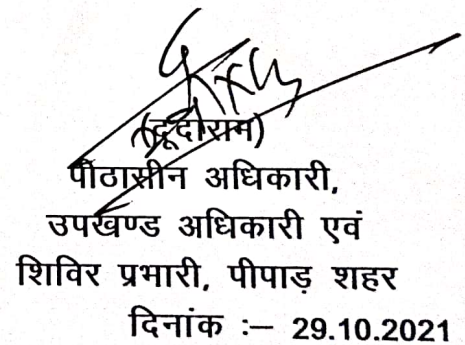 (दूदाराम)
पीठासीन अधिकारी,
उपखण्ड अधिकारी एवं
शिविर प्रभारी, पीपाड़ शहर
दिनांक :– 29.10.2021